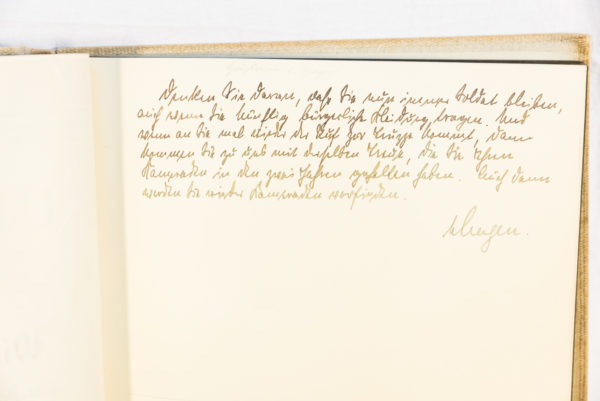 Denken Sie daran, daß Sie nun immer Soldat bleiben,
auch wenn Sie künftig bürgerliche Kleidung tragen. Und
wenn an Sie mal wieder der Ruf zur Truppe kommt, dann
kommen Sie zu uns mit derselben Treue, die Sie Ihren
Kameraden in den zwei Jahren gehalten haben. Auch dann
werden Sie wieder Kameraden vorfinden.